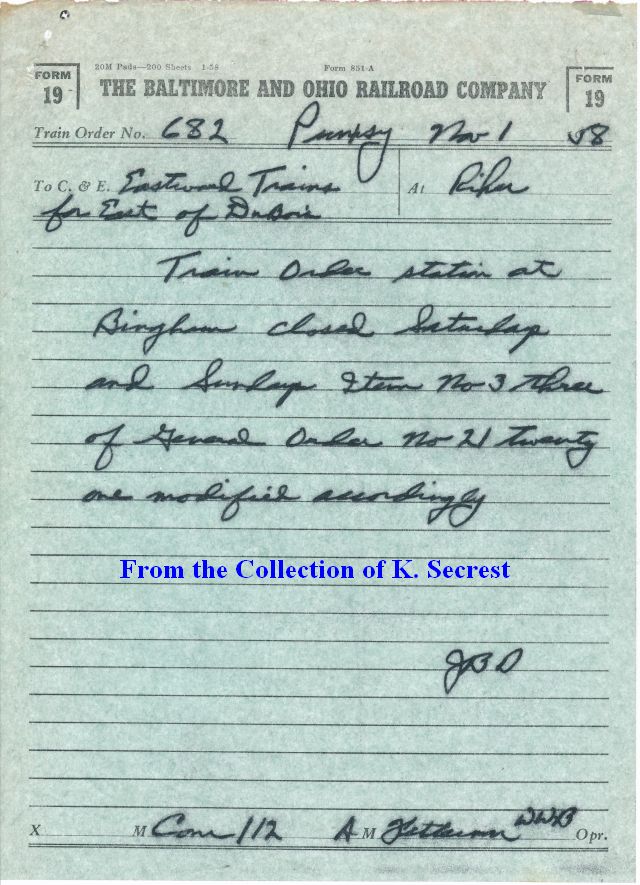 20M Pads—200 Sheets 1-58 Form 851-A
FORM 19 FORM 19
THE BALTIMORE AND OHIO RAILROAD COMPANY
Train Order No. 682 Punxsy Nov 1 58
To C. & E. Eastward Trains At Riker
for East of DuBois
Train Order station at
Bingham closed Saturday
and Sunday Item No 3 three
of General Order No 21 twenty
one modified accordingly
From the Collection of K. Secrest
JBD
X M Com 112 A M WWB Opr.